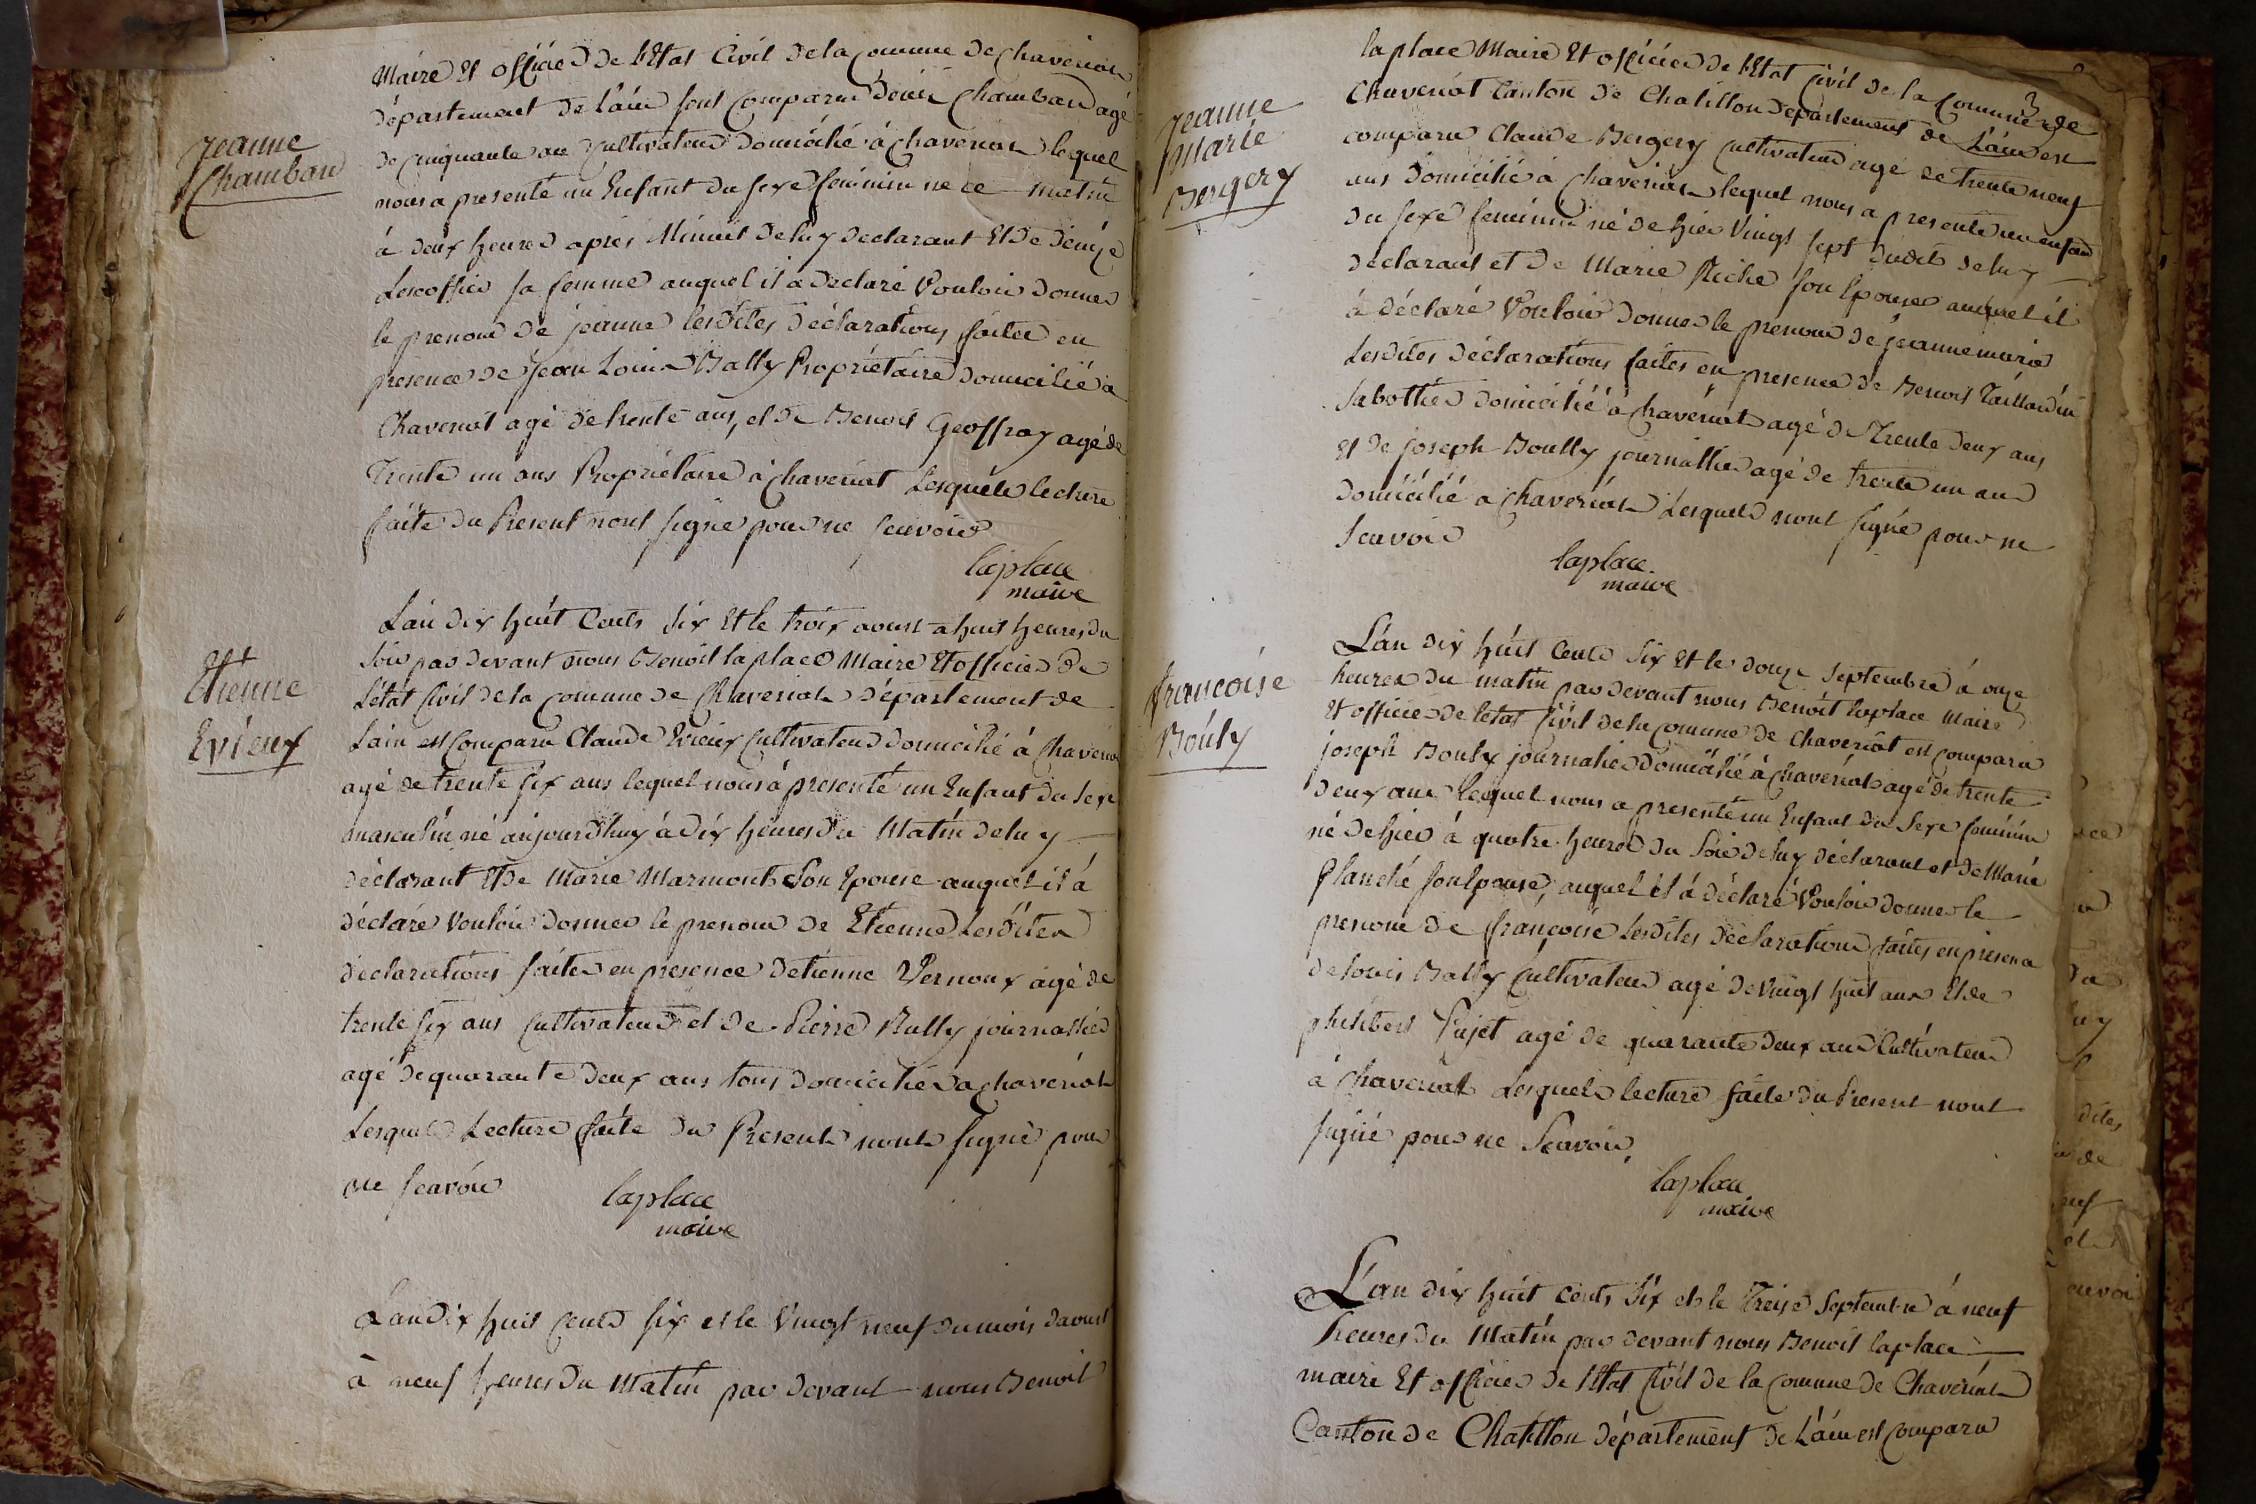 Maire Et officier de l'Etat Civil de la Commune de Chaveriat
département de l'ain sont Comparu denis Chamband agé
de cinquante an Cultivateur domicilié à chaveriat lequel
nous a presenté un Enfant du sexe feminin né ce matin
à deux heures après Minuit de luy declarant Et de denize
sa femme auquel il a declaré Vouloir donner
le prenom de jeanne lesdites déclarations faites en
presence de jean Louis Bally Propriétaire domicilié à
Chaveriat agé de trente ans, et de Benoit Geoffray agé de
Trente un ans Propriétaire à Chaveriat Lesquels lecture
faite du Present n'ont signé pour ne scavoir
laplace
maire
Jeanne
Chamband
L'an dix huit Cents six Et le troix aoust a huit heures du
soir par devant nous Benoit laplace Maire Et officier de
L'état Civil de la Comune de Chaveriat département de
L'ain est Comparu Claude Evieux Cultivateur domicilié à Chaveriat
agé de trente six ans lequel nous à presenté un Enfant du sexe
masculin né aujourdhuy à dix heures du Matin de luy
déclarant Et de Marie Marmont Son Epouse auquel il à
déclaré Vouloir donner le prenom de Etienne Lesdites
déclarations faites en presence d'etienne Vernoux agé de
trente six ans Cultivateur et de Pierre Rully journallier
agé de quarante deux ans tous domiciliés a Chavériat
Lesquels Lecture faite du Present n'ont signé pour
ne scavoir
laplace
maire
Etienne
Evieux
L'an dix huit Cents six et le Vingt neuf du mois daoust
à neuf heures du Matin par devant nous Benoit
laplace Maire Et officier de l'Etat Civil de la Commune de
Chaveriat Canton de Chatillon département de L'ain est
comparu Claude Bergery Cultivateur agé de trente neuf
ans domicilié à Chaveriat lequel nous a presenté un enfant
du sexe feminin né de hier Vingt sept dudit de luy
déclarant et de Marie Riche son Epouse auquel il
à déclaré Vouloir donner le prenom de jeanne marie
Lesdites déclarations faites en presence de Benoit Taillardin
Sabottier domicilié à Chavériat agé de Trente deux ans
Et de joseph Boully journallier agé de trente un ans
domicilié a Chavériat Lesquels n'ont signé pour ne
scavoir
laplace
maire
Jeanne
Marie
Bergery
L'an dix huit Cents Six Et le douze Septembre à onze
heures du matin par devant nous Benoit laplace Maire
Et officier de l'etat Civil de la Comune de Chaveriat est comparu
joseph Bouly journalier domicilié à Chaveriat agé de trente
deux ans lequel nous a presenté un Enfant du Sexe feminin
né de hier à quatre heures du soir de luy déclarant et de Marie
Planché son Epouse, auquel il à déclaré Vouloir donner le
prenom de françoise Lesdites déclarations faites en presence
de louis Bally Cultivateur agé de Vingt huit ans Et de
philibert Pujet agé de quarante deux ans Cultivateur
à Chaveriat Lesquels lecture faite du Present n'ont
signé pour ne Scavoir
laplace
maire
françoise
Bouly
L'an dix huit Cents Six et le Treize Septembre à neuf
heures du Matin par devant nous Benoit laplace
maire Et officier de l'Etat Civil de la Comune de Chaveriat
Canton de Chatillon département de L'ain est Comparu